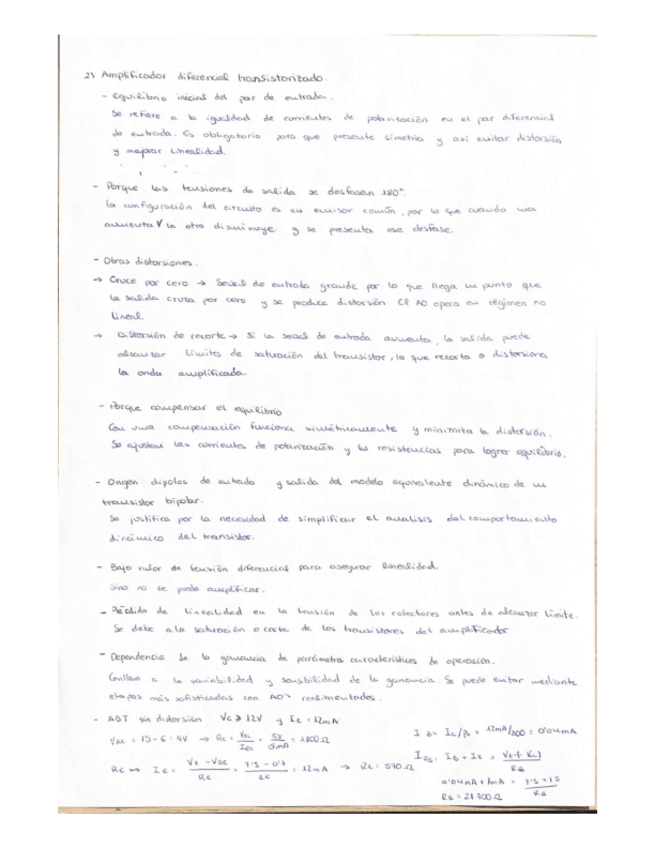 2) Amplificador diferencial transistorizado.
- Equilibrio inicial del par de entrada.
Se refiere a la igualdad de corrientes de polarización en el par diferencial
de entrada. Es obligatorio para que presente simetria y asi evitar distorsión
y mejorar linealidad.
- Porque las tensiones de salida se desfasan 180°.
La configuración del circuito es en emisor común, por lo que cuando una
aumenta V la otra disminuye y se presenta ese desfase.
- Otras distorsiones.
→ Cruce por cero → Señal de entrada grande por lo que llega un punto que
la salida cruza por cero y se produce distorsión. El AD opera en régimen no
lineal.
→ Distorsión de recorte → Si la señal de entrada aumenta, la salida puede
alcanzar límites de saturación del transistor, lo que recorta o distorsiona
la onda amplificada.
- Porque compensar el equilibrio
Con una compensación funciona simétricamente y minimiza la distorsión.
Se ajustan las corrientes de polarización y las resistencias para lograr equilibrio.
- Origen dipolos de entrada y salida del modelo equivalente dinámico de un
transistor bipolar.
Se justifica por la necesidad de simplificar el analisis del comportamiento
dinámico del transistor.
- Bajo valor de tensión diferencial para asegurar linealidad.
Sino no se puede amplificar.
- Pérdida de linealidad en la tensión de los colectores antes de alcanzar límite.
Se debe a la saturación o corte de los transistores del amplificador
- Dependencia de la ganancia de parámetros característicos de operación.
Conlleva a la variabilidad y sensibilidad de la ganancia. Se puede evitar mediante
etapas más sofisticadas con AO's realimentados.
- ADT sin distorsión Vc ≥ 12V y Ic = 12mA
= 15 - 6 = 9V → Rc = = 1800Ω
I B = Ic/β = 12mA/300 = 0'04mA
Rc ↔ Ic = = = 12mA → Rc = 570Ω
= IB + =
0'04mA + 1mA = 7'5 + 15 / RB
RB = 21700Ω